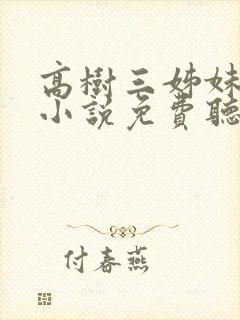 高樹三姊妹
小説免費聽
付春燕